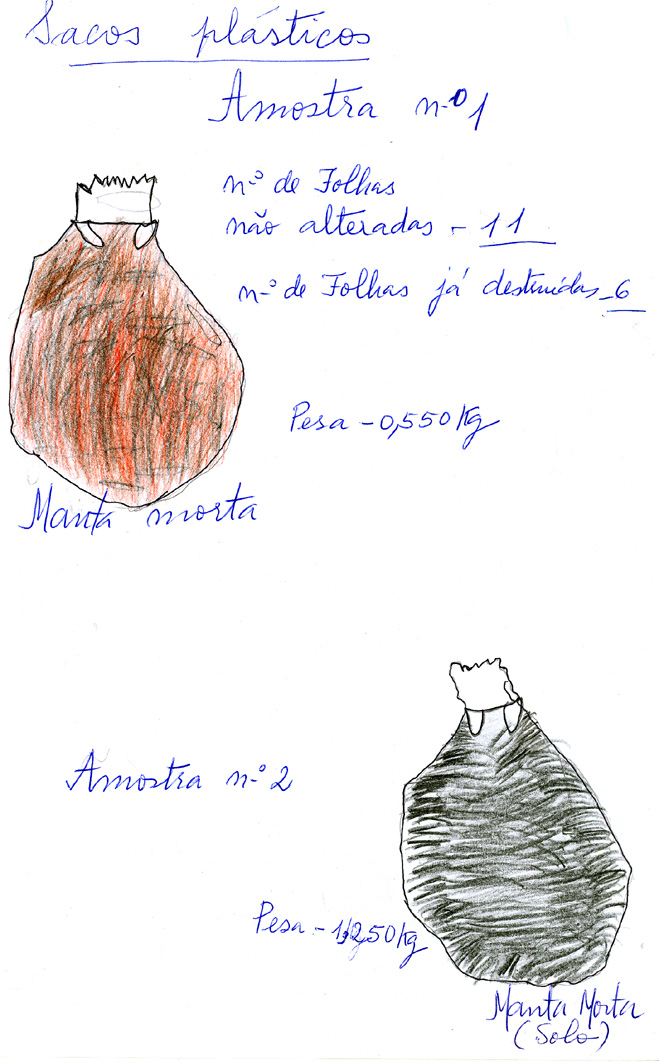 Sacos plásticos
Amostra nº 1
nº de Folhas
não alteradas - 11
nº de Folhas já destruídas - 6
Pesa - 0,550 Kg
Manta morta
Amostra nº 2
Pesa - 1,250 Kg
Manta Morta
(Solo)